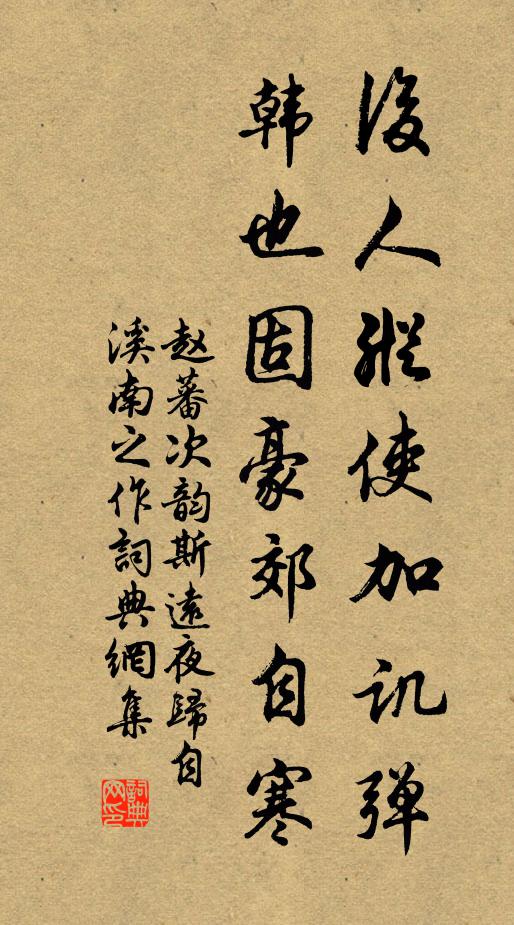 後人縱使加讥弹
韩也固豪郊自寒
赵蕃次韵斯遠夜歸自
溪南之作詞典網集
詞典网印